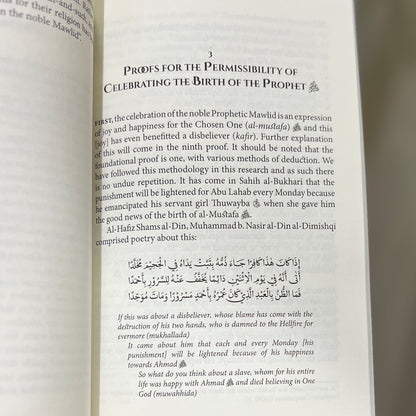 and-such,
s for their religion has
n the noble Mawlid".
3
PROOFS FOR THE PERMISSIBILITY OF
CELEBRATING THE BIRTH OF THE PROPHET ﷺ
FIRST, the celebration of the noble Prophetic Mawlid is an expression
of joy and happiness for the Chosen One (al-mustafa) ﷺ and this
[joy] has even benefited a disbeliever (kafir). Further explanation
of this will come in the ninth proof. It should be noted that the
foundational proof is one, with various methods of deduction. We
have followed this methodology in this research and as such there
is no undue repetition. It has come in Sahih al-Bukhari that the
punishment will be lightened for Abu Lahab every Monday because
he emancipated his servant girl Thuwayba when she gave him
the good news of the birth of al-Mustafa ﷺ.
Al-Hafiz Shams al-Din, Muhammad b. Nasir al-Din al-Dimishqi
comprised poetry about this:
إِذَا كَانَ هَذَا كَافِرًا جَاءَ ذَمُّهُ بِتَبَّتْ يَدَاهُ فِي الْجَحِيمِ مُخَلَّدًا
أَتَى أَنَّهُ فِي يَوْمِ الْاثْنَيْنِ دَائِمًا يُخَفَّفُ عَنْهُ لِلسُّرُورِ بِأَحْمَدَا
فَمَا الظَّنُّ بِالْعَبْدِ الَّذِي كَانَ عُمْرَهُ بِأَحْمَدَ مَسْرُورًا وَمَاتَ مُوَحِّدًا
If this was about a disbeliever, whose blame has come with the
destruction of his two hands, who is damned to the Hellfire for
evermore (mukhallada)
It came about him that each and every Monday [his
punishment] will be lightened because of his happiness
towards Ahmad ﷺ
So what do you think about a slave, whom for his entire
life was happy with Ahmad ﷺ and died believing in One
God (muwahhida)